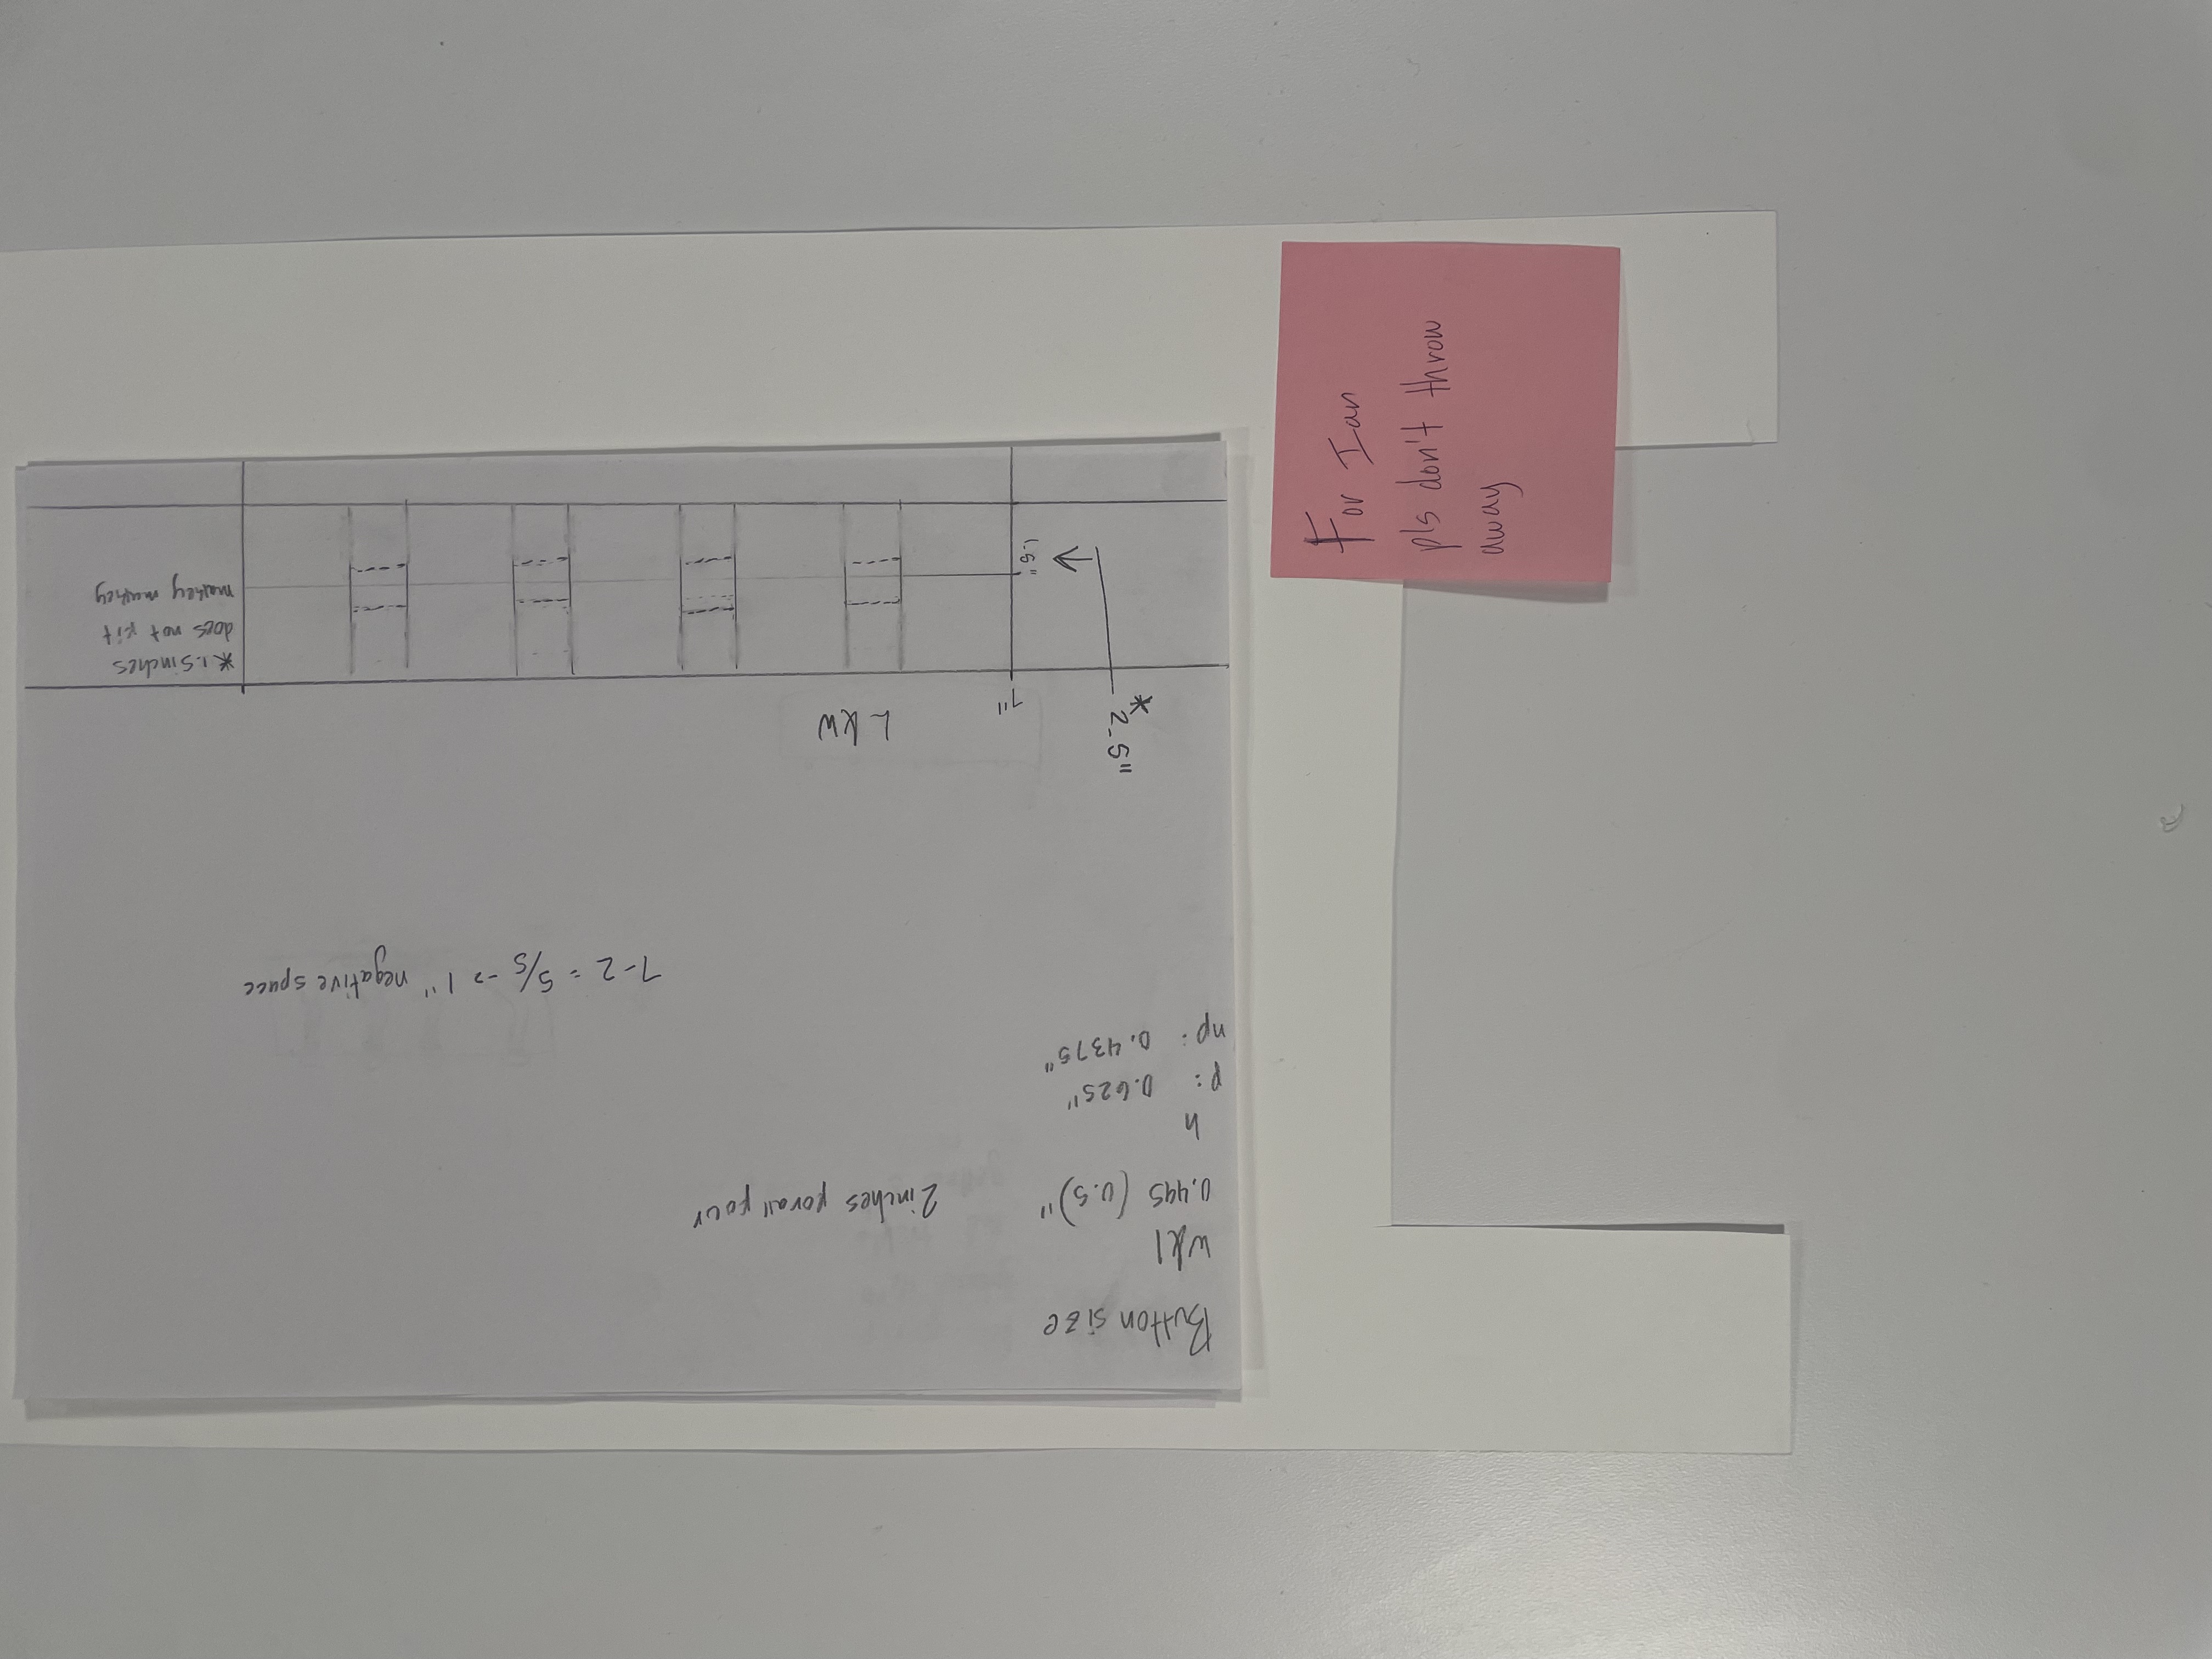 Button size
w&l
0.495 (0.5)"
2 inches for all four
h
p: 0.625"
np: 0.4375"
7-2 = 5/5 -> 1" negative space
L&W
7"
*2.5"
1.5"
* 1.5 inches
does not fit
makey makey
For Ian
pls don't throw
away